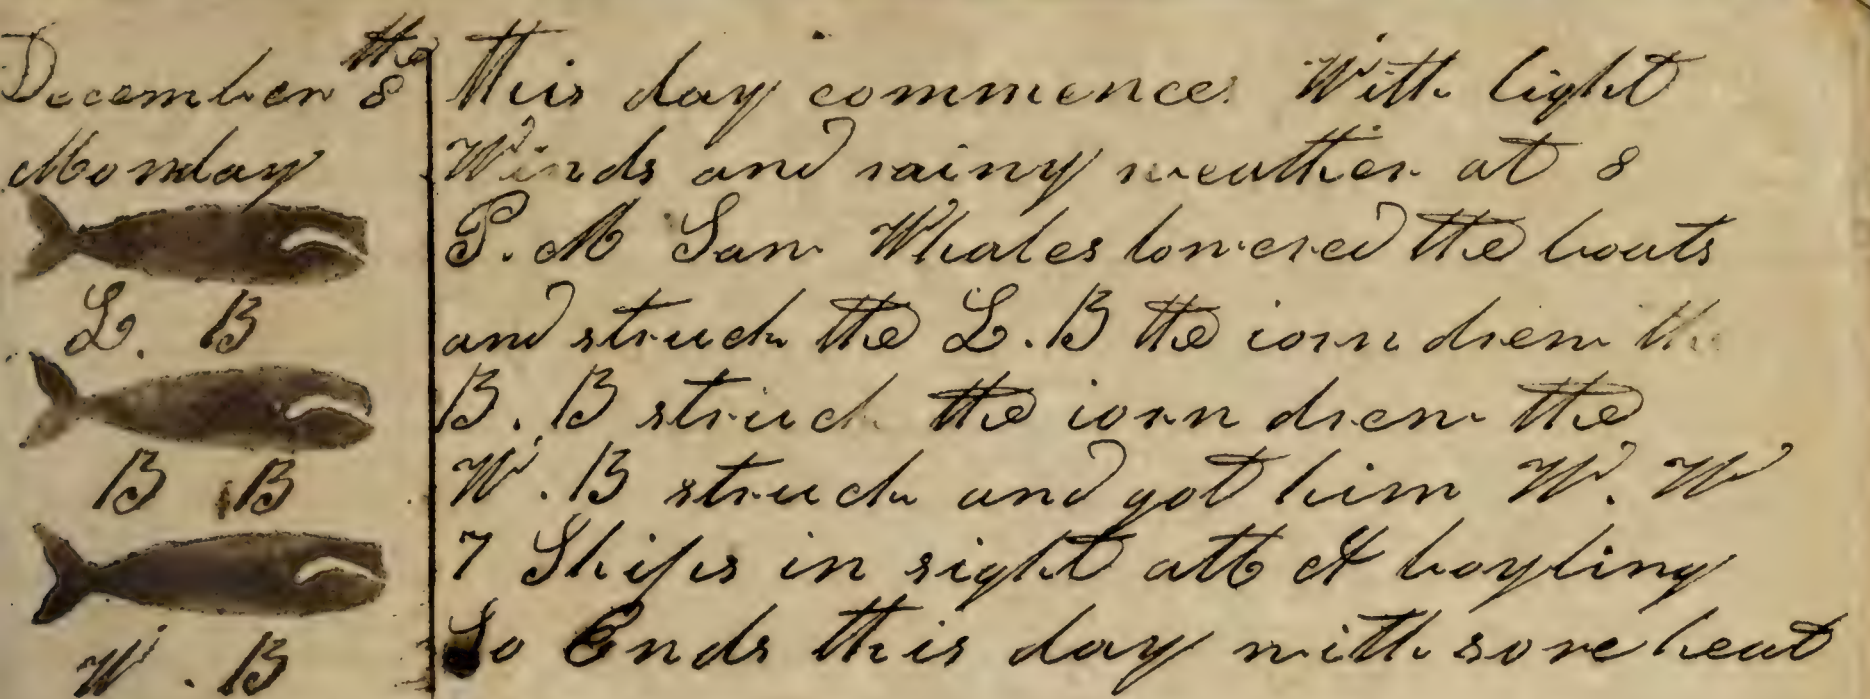 December the 8
Monday
L. B
B B
W. B
This day commence With light
Winds and rainy weather at 8
P. M Saw Whales lowered the boats
and struck the L. B the iorn drew the
B. B struck the iorn drew the
W. B struck and got him W. W
7 Ships in sight A boyling
So Ends this day with sore heat